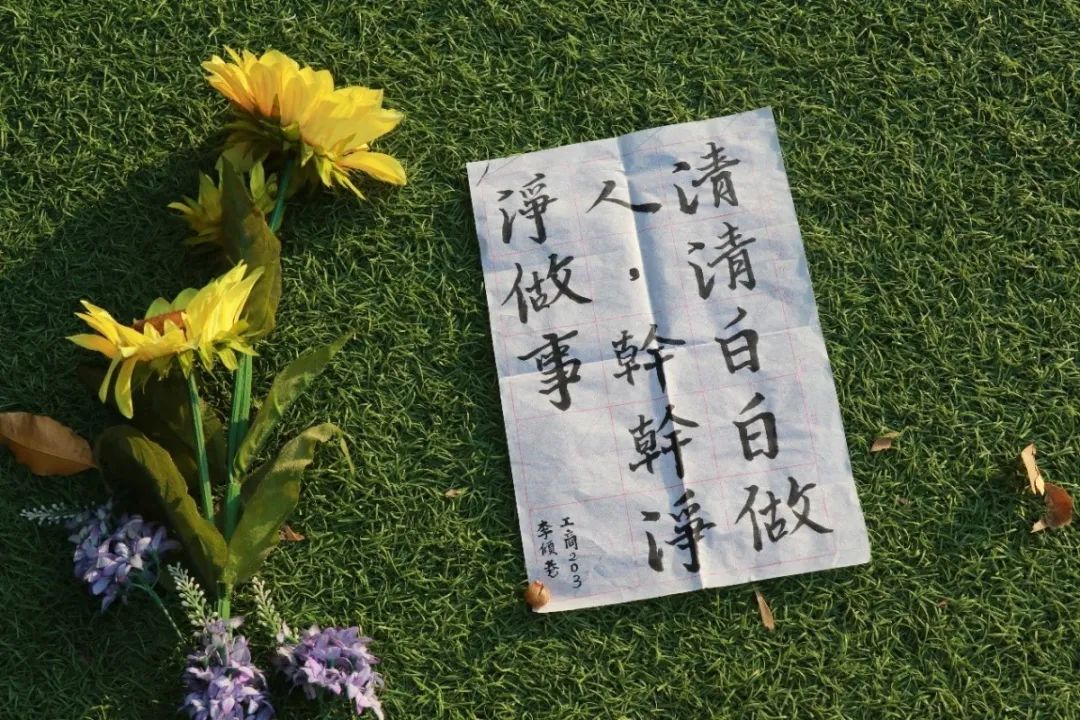 清清白白做
人，幹幹淨
淨做事
工商203
李倾